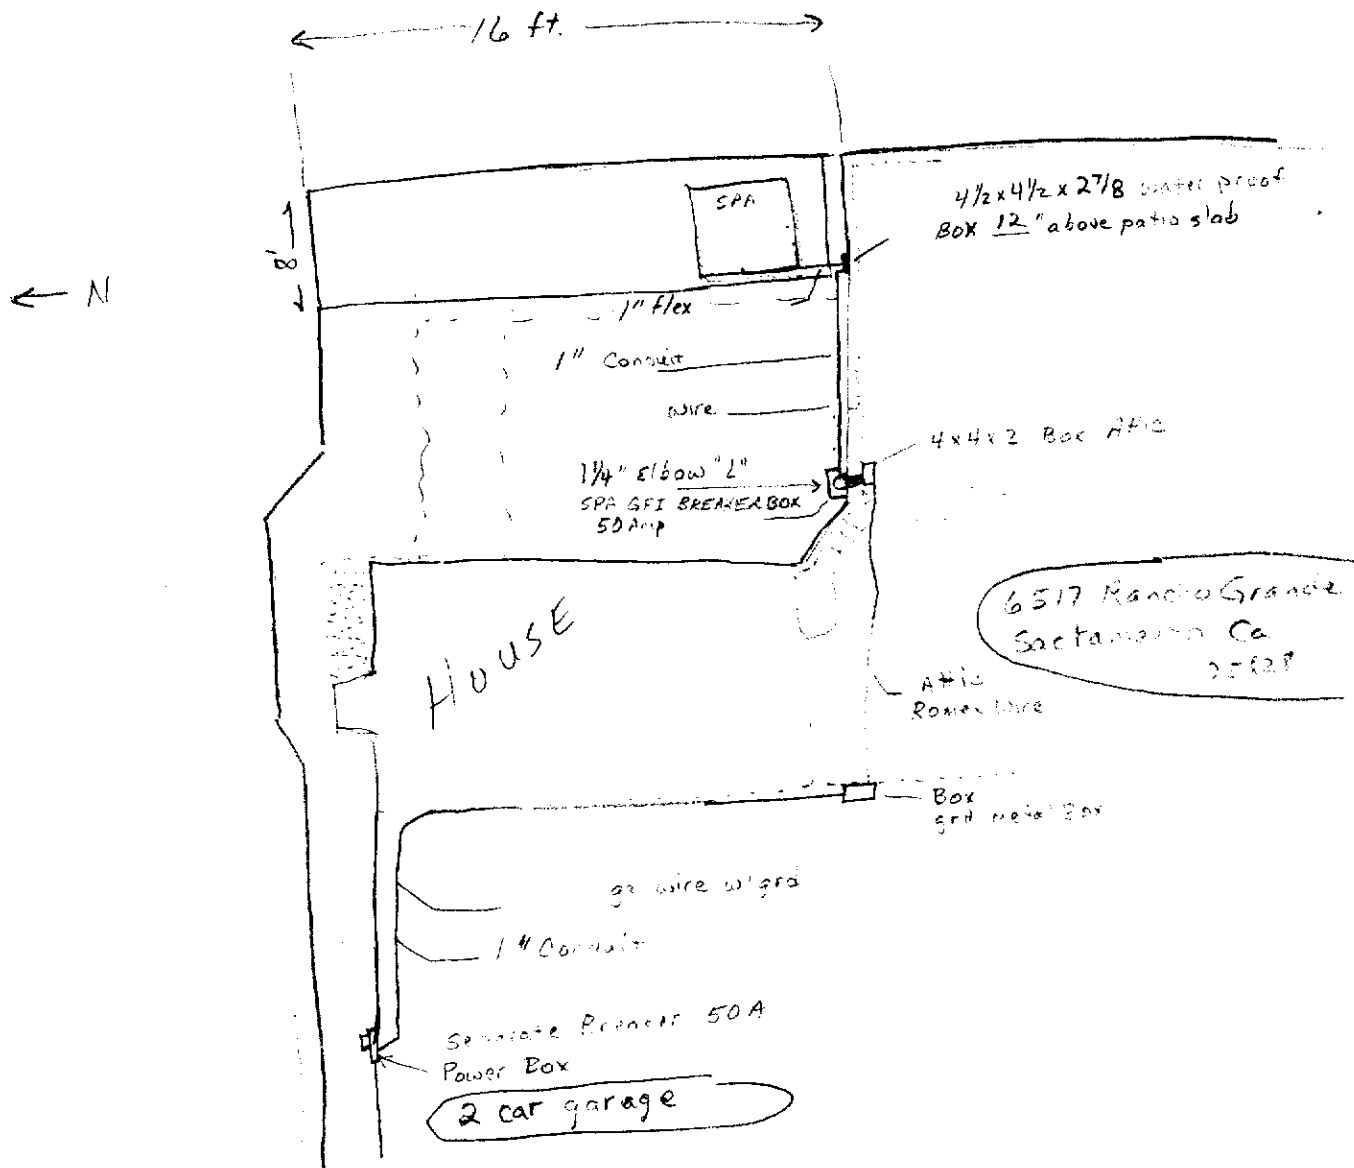 16 ft.
8'
← N
SPA
4½ x 4½ x 2⅞ water proof
Box 12" above patio slab
1" flex
1" Conduit
wire
4x4x2 Box Attic
1¼" Elbow "L"
SPA GFI BREAKER BOX
50 Amp
HOUSE
6517 Rancho Grande
Ca
Attic
Romex Wire
Box
grd metal Box
wire w/grd
1" Conduit
Separate Breaker 50A
Power Box
2 car garage